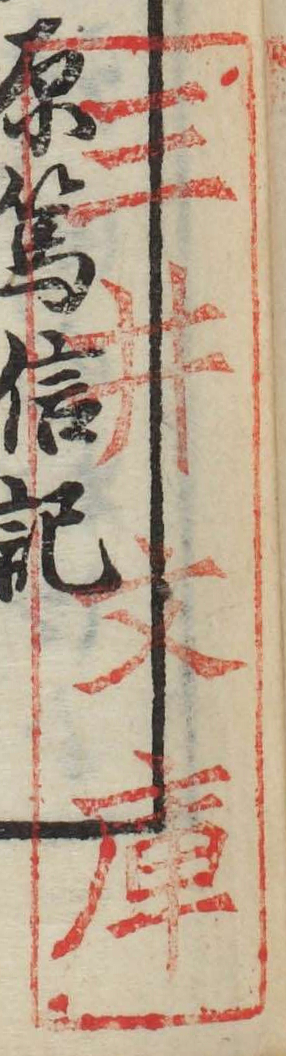 三井文庫
原篤信記